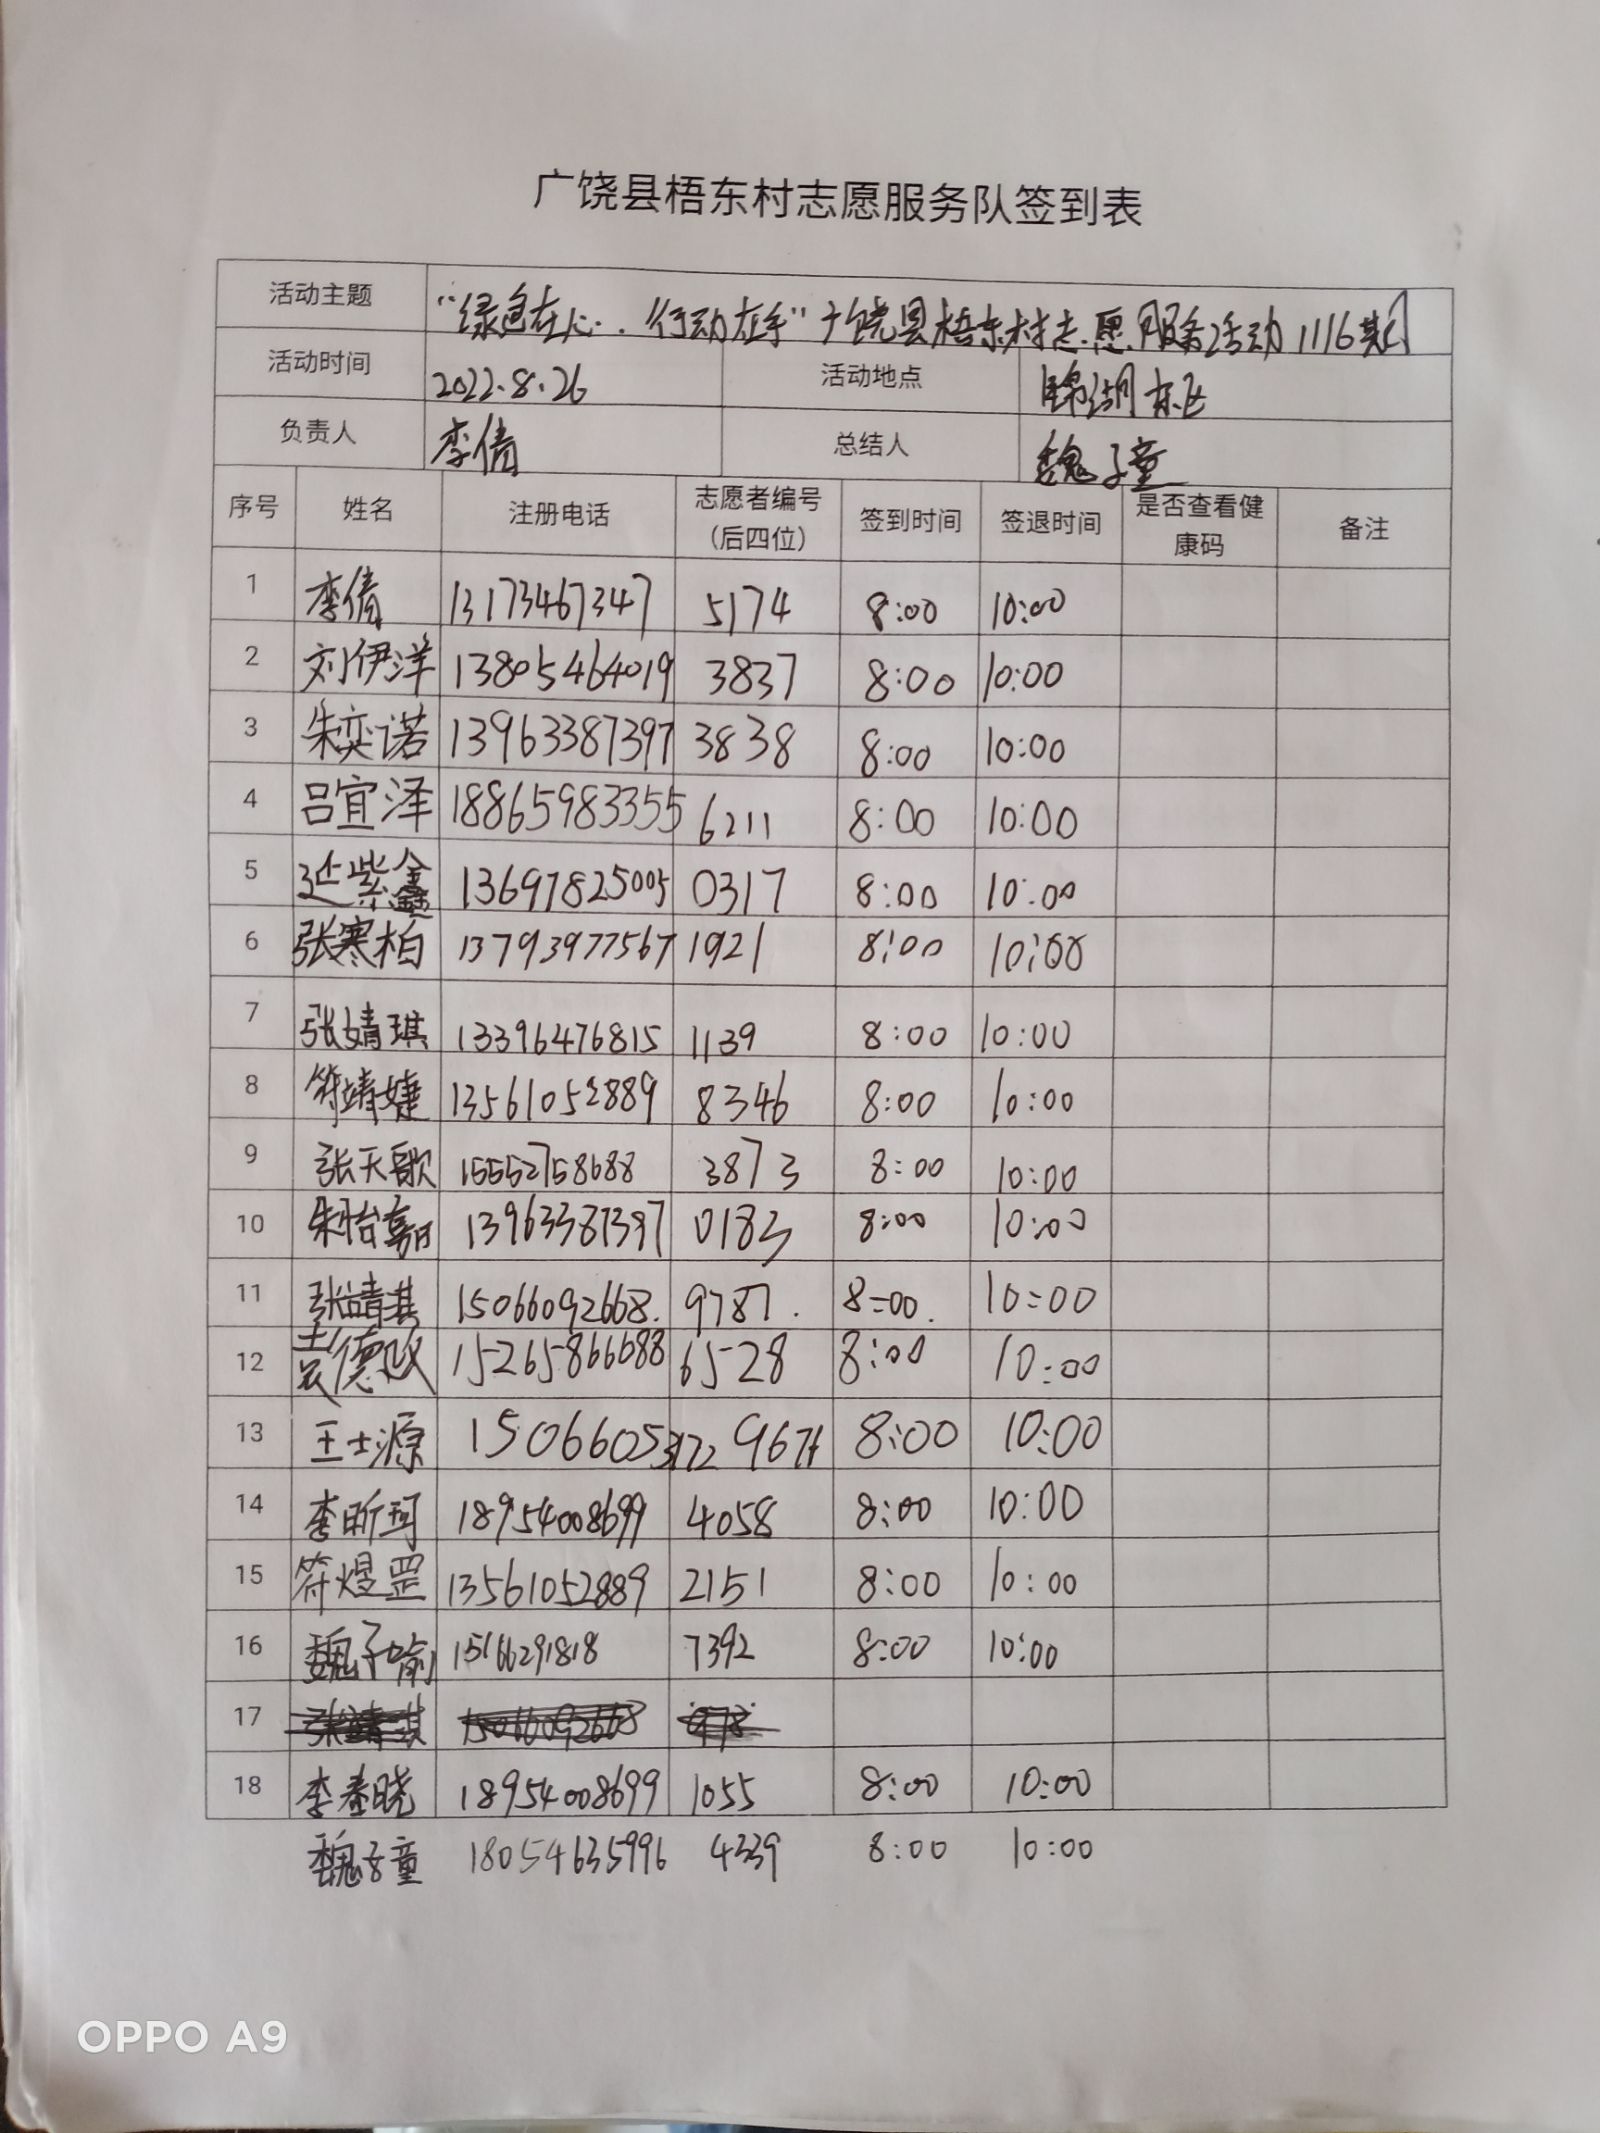 广饶县梧东村志愿服务队签到表
活动主题 “绿色在心..行动在手”广饶县梧东村志愿服务活动1116期
活动时间 2022.8.26 活动地点 锦湖东区
负责人 李倩 总结人 魏子童
序号 姓名 注册电话 志愿者编号（后四位） 签到时间 签退时间 是否查看健康码 备注
1 李倩 13173467347 5174 8:00 10:00
2 刘伊洋 13805464019 3837 8:00 10:00
3 朱奕诺 13963387397 3838 8:00 10:00
4 吕宜泽 18865983355 6211 8:00 10:00
5 紫鑫 13697825005 0317 8:00 10:00
6 张寒柏 13793977567 1921 8:00 10:00
7 张婧琪 13396476815 1139 8:00 10:00
8 符靖婕 13561052889 8346 8:00 10:00
9 张天歌 15552758688 3873 8:00 10:00
10 朱怡 13963387397 0183 8:00 10:00
11 张靖淇 15066092668. 9787. 8:00. 10:00
12 德政 15265866688 6528 8:00 10:00
13 王士源 15066053172 8:00 10:00
14 李昕珂 18954008699 4058 8:00 10:00
15 符煜罡 13561052889 2151 8:00 10:00
16 魏子喻 15166291818 7392 8:00 10:00
17
18 李春晓 18954008699 1055 8:00 10:00
魏子童 18054635996 4339 8:00 10:00
OPPO A9